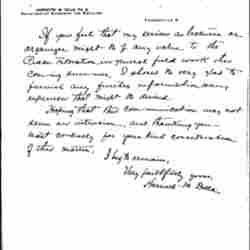 If you feel that my services as lecturer or
organizer might be of any value to the
Peace Federation in general field work this
coming summer, I should be very glad to
furnish any further information or any
references that might be desired.
Hoping that this communication may not
seem an intrusion, and thanking you
most cordially for your kind consideration
of this matter,
I beg to remain,
Very faithfully yours,